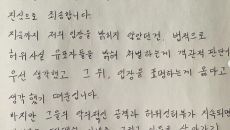 진심으로 죄송합니다.
지금까지 저의 입장을 밝히지 않았던건, 법적으로
허위사실 유포자들을 밝혀 처벌하는게 객관적 판단이
우선 생각했고 그 뒤, 입장을 표명하는게 옳다고
생각했기 때문입니다.
하지만 그들의 악의적인 공격과 허위인터뷰가 지속되면